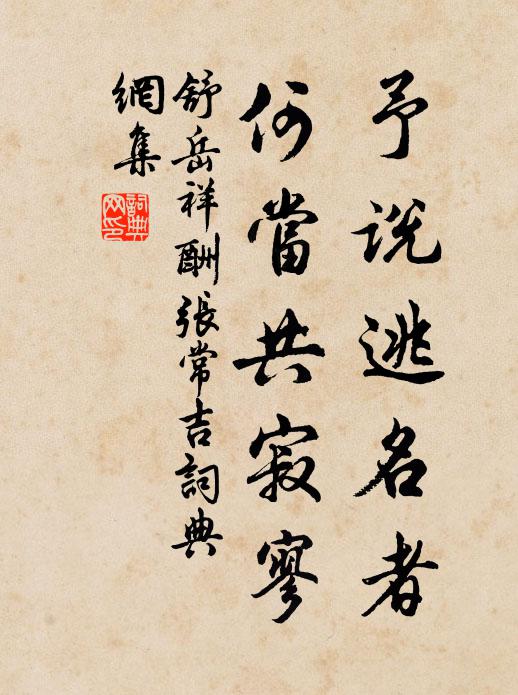 予説逃名者
何當共寂寥
舒岳祥酬張常吉詞典
網集
詞典
网印